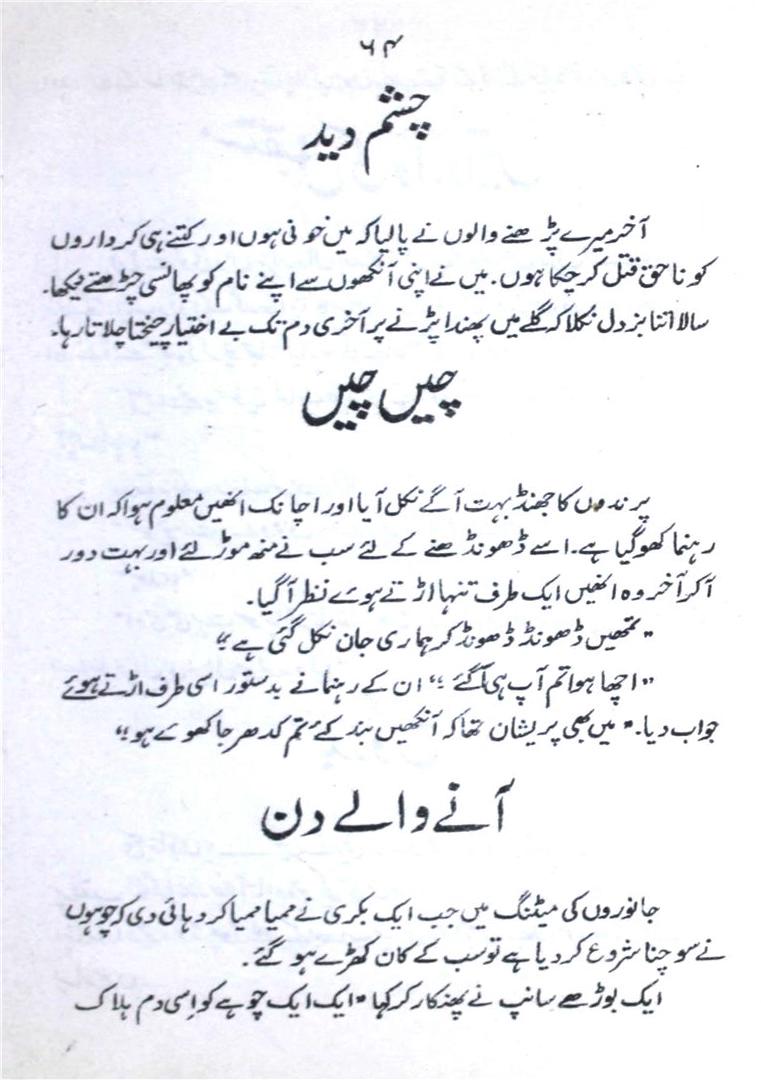 ۶۴
چشم دید
آخر میرے پڑھنے والوں نے پالیا کہ میں خونی ہوں اور کتنے ہی کرداروں
کو ناحق قتل کر چکا ہوں۔ میں نے اپنی آنکھوں سے اپنے نام کو پھانسی چڑھتے دیکھا۔
سالا اتنا بزدل نکلا کہ گلے میں پھندا پڑنے پر آخری دم تک بے اختیار چیختا چلاتا رہا۔
چیں چیں
پرندوں کا جھنڈ بہت آگے نکل آیا اور اچانک انھیں معلوم ہوا کہ ان کا
رہنما کھو گیا ہے۔ اسے ڈھونڈھنے کے لئے سب نے منھ موڑ لئے اور بہت دور
آکر آخر وہ انھیں ایک طرف تنہا اڑتے ہوئے نظر آگیا۔
"تمھیں ڈھونڈ ڈھونڈ کر ہماری جان نکل گئی ہے"
"اچھا ہوا تم آپ ہی آگئے" ان کے رہنما نے بدستور اسی طرف اڑتے ہوئے
جواب دیا۔ "میں بھی پریشان تھا کہ آنکھیں بند کئے تم کدھر جا کھوے ہو"
آنے والے دن
جانوروں کی میٹنگ میں جب ایک بکری نے ممیا ممیا کر دہائی دی کہ چوہوں
نے سوچنا شروع کر دیا ہے تو سب کے کان کھڑے ہو گئے۔
ایک بوڑھے سانپ نے پھنکار کر کہا "ایک ایک چوہے کو اِسی دم ہلاک